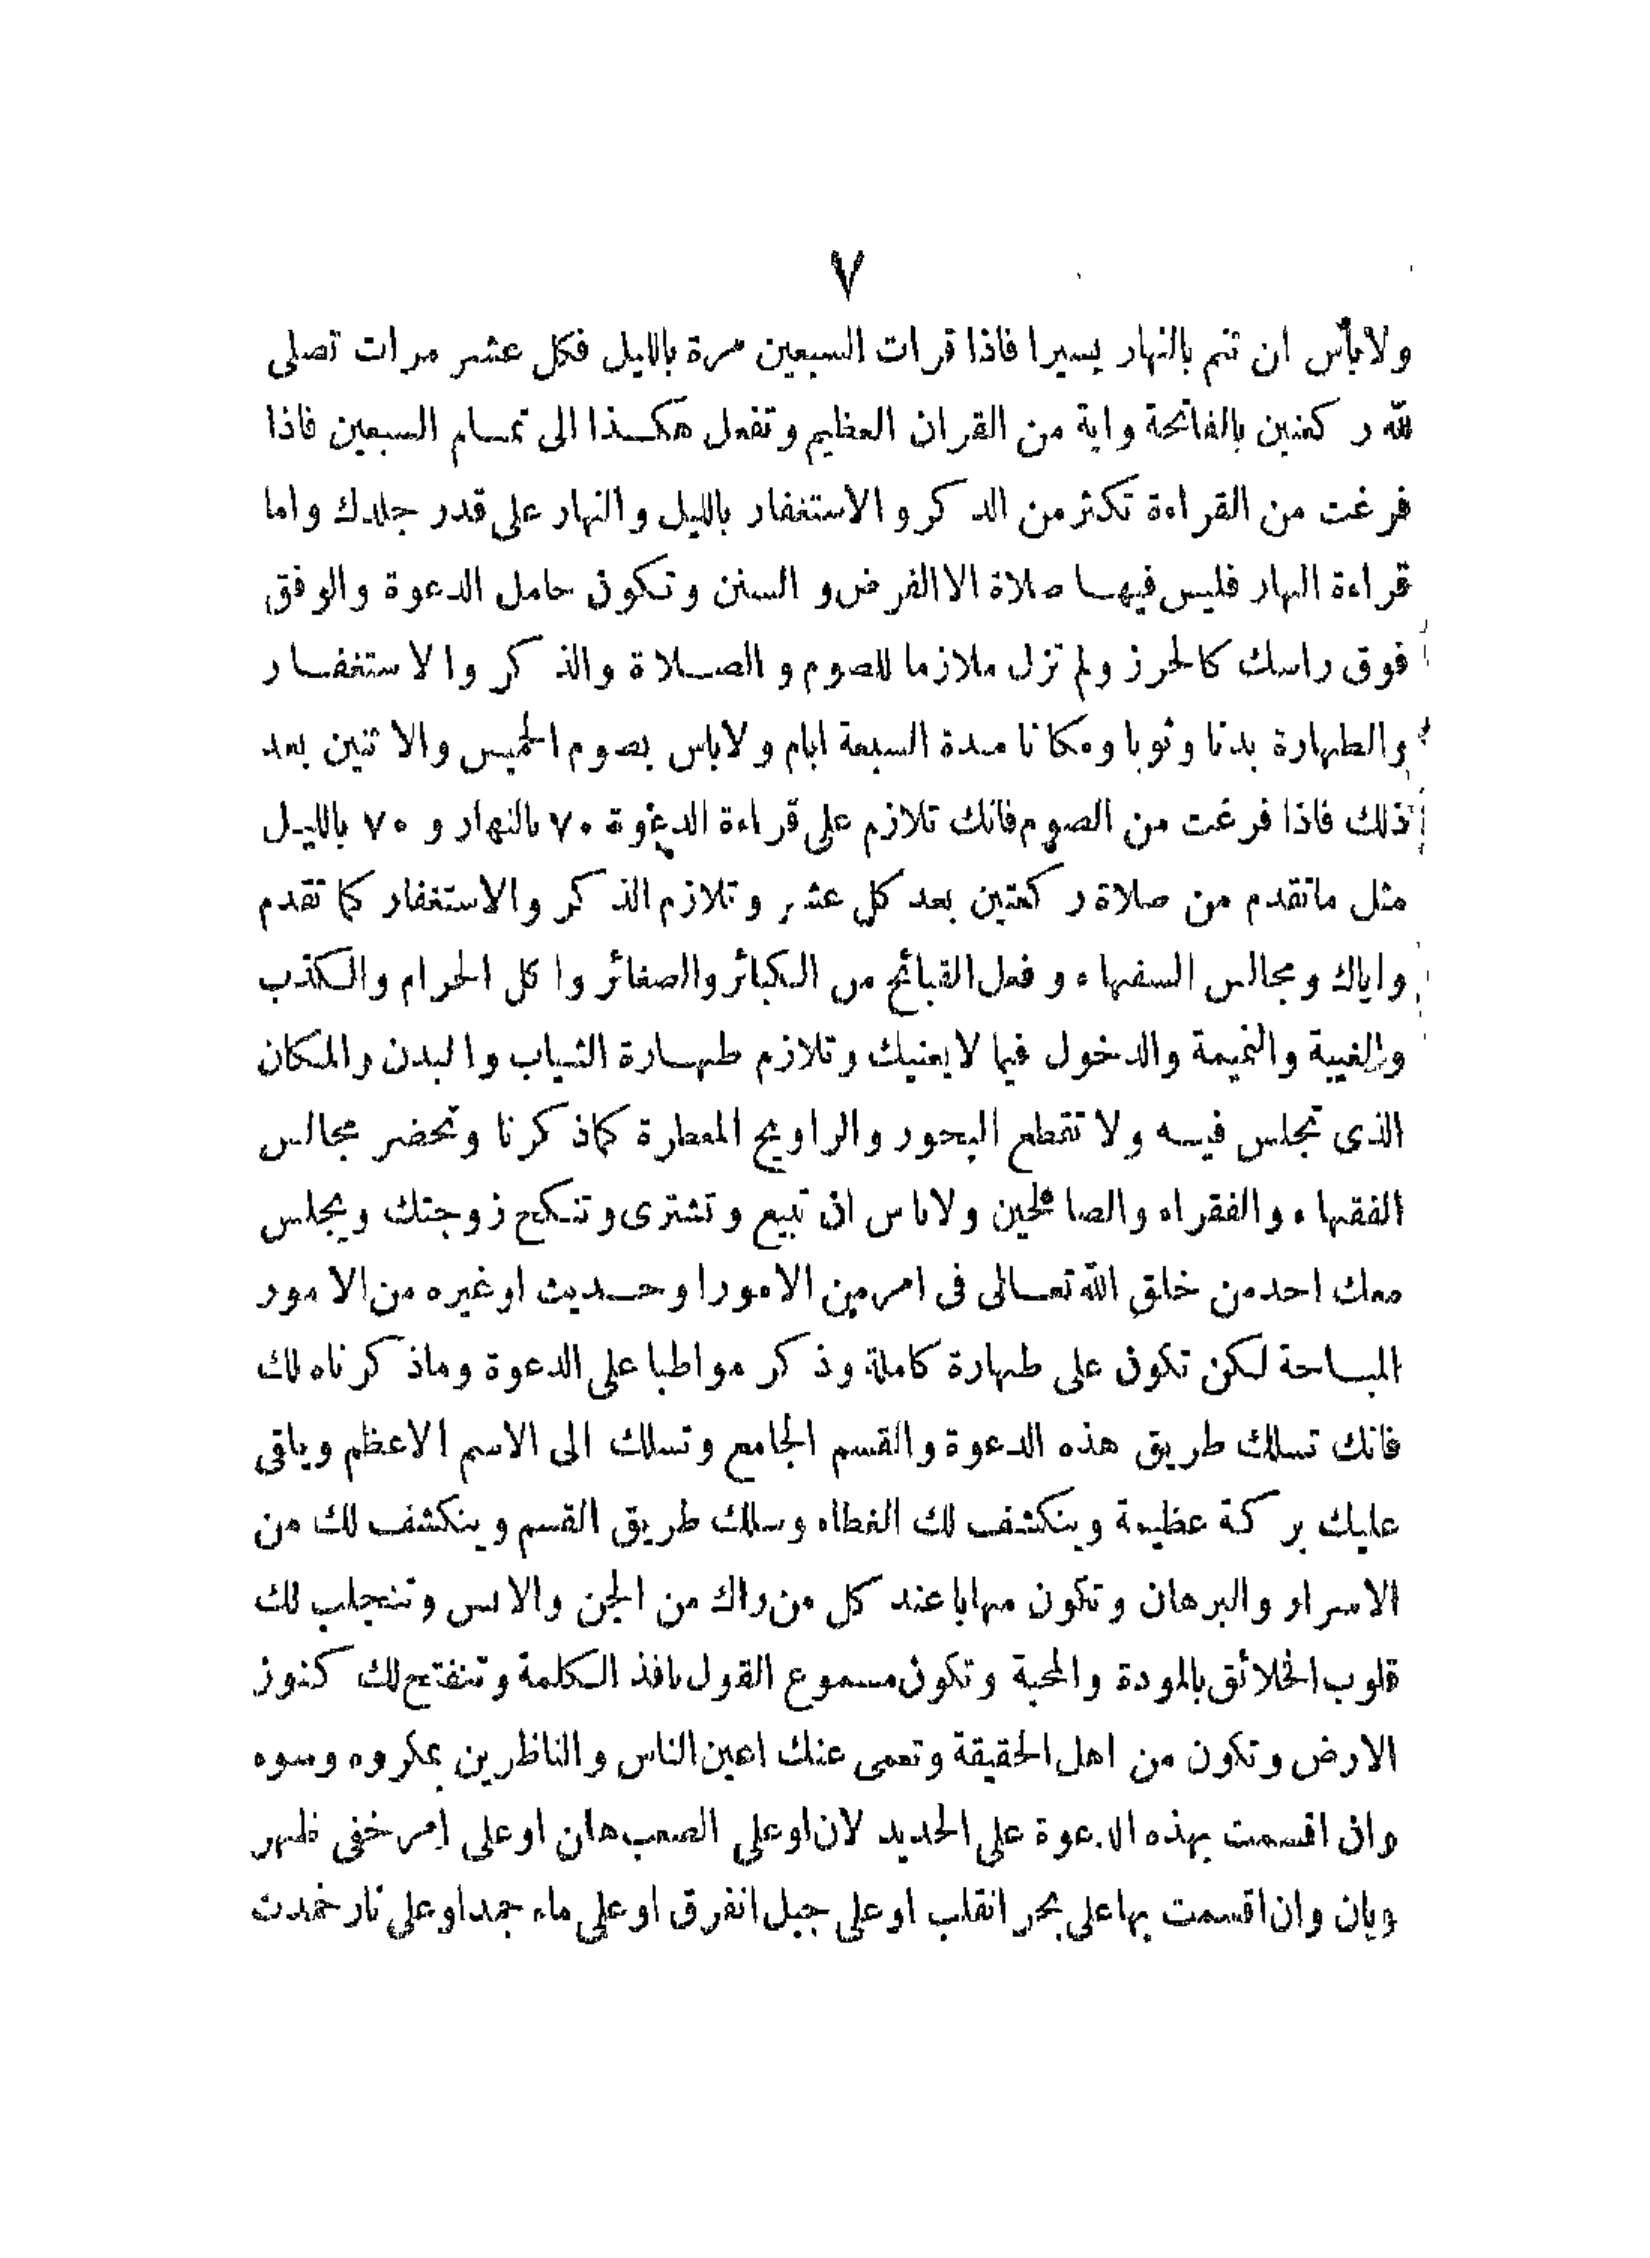 ٧
ولابأس ان تنم بالنهار يسيرا فاذا قرات السبعين مرة بالليل فكل عشر مرات تصلى
لله ركعتين بالفاتحة واية من القران العظيم وتفعل هكذا الى تمام السبعين فاذا
فرغت من القراءة تكثر من الذكر والاستغفار بالليل والنهار على قدر جلدك واما
قراءة النهار فليس فيها صلاة الا الفرض والسنن وتكون حامل الدعوة والوفق
فوق راسك كالحرز ولم تزل ملازما للصوم والصلاة والذكر والاستغفار
والطهارة بدنا وثوبا ومكانا مدة السبعة ايام ولاباس بصوم الخميس والاثنين بعد
ذلك فاذا فرغت من الصوم فانك تلازم على قراءة الدعوة ٧٠ بالنهار و ٧٠ بالليل
مثل ماتقدم من صلاة ركعتين بعد كل عشر وتلازم الذكر والاستغفار كما تقدم
واياك ومجالس السفهاء وفعل القبائح من الكبائر والصغائر واكل الحرام والكذب
والغيبة والنميمة والدخول فيما لايعنيك وتلازم طهارة الثياب والبدن والمكان
الذى تجلس فيه ولا تقطع البخور والراويح المعطرة كماذكرنا وتحضر مجالس
الفقهاء والفقراء والصالحين ولاباس ان تبيع وتشترى وتنكح زوجتك ويجلس
معك احد من خلق الله تعالى فى امر من الامور او حديث او غيره من الامور
المباحة لكن تكون على طهارة كاملة وذكر مواظبا على الدعوة وماذكرناه لك
فانك تسلك طريق هذه الدعوة والقسم الجامع وتسلك الى الاسم الاعظم وياقى
عليك بركة عظيمة وينكشف لك الغطاء وسلك طريق القسم وينكشف لك من
الاسرار والبرهان وتكون مهابا عند كل من راك من الجن والانس وتنجلب لك
قلوب الخلائق بالمودة والمحبة وتكون مسموع القول نافذ الكلمة وتنفتح لك كنوز
الارض وتكون من اهل الحقيقة وتعمى عنك اعين الناس والناظرين بمكروه وسوء
وان اقسمت بهذه الدعوة على الحديد لان اوعلى الصعب هان اوعلى امر خفى ظهر
وبان وان اقسمت بها على بحر انقلب اوعلى جبل انفرق اوعلى ماء جمد اوعلى نار خمدت